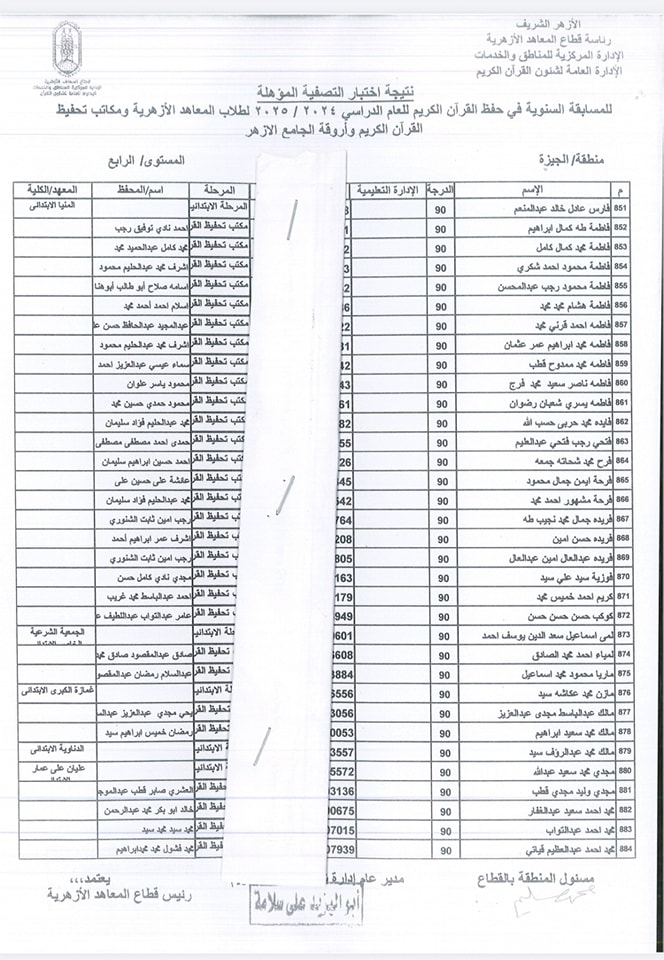 الأزهر الشريف
رئاسة قطاع المعاهد الأزهرية
الإدارة المركزية للمناطق والخدمات
الإدارة العامة لشئون القرآن الكريم
نتيجة اختبار التصفية المؤهلة
للمسابقة السنوية في حفظ القرآن الكريم للعام الدراسي ٢٠٢٤ / ٢٠٢٥ لطلاب المعاهد الأزهرية ومكاتب تحفيظ
القرآن الكريم وأروقة الجامع الازهر
منطقة/ الجيزة المستوى/ الرابع
م الإسم الدرجة الإدارة التعليمية المرحلة اسم/المحفظ المعهد/الكلية
851 فارس عادل خالد عبدالمنعم 90 المرحلة الابتدائي المنيا الابتدائى
852 فاطمة طه كمال ابراهيم 90 1 مكتب تحفيظ القر احمد نادي توفيق رجب
853 فاطمة محمد كمال كامل 90 2 مكتب تحفيظ القر محمد كامل عبدالحميد محمد
854 فاطمة محمود احمد شكري 90 3 مكتب تحفيظ القر اشرف محمد عبدالحليم محمود
855 فاطمة محمود رجب عبدالمحسن 90 2 مكتب تحفيظ القر اسامه صلاح أبو طالب أبوهنا
856 فاطمة هشام محمد محمد 90 36 مكتب تحفيظ القر اسلام احمد أحمد محمد
857 فاطمه احمد قرني محمد 90 22 مكتب تحفيظ القر عبدالمجيد عبدالحافظ حسن ع
858 فاطمه محمد ابراهيم عمر عثمان 90 31 مكتب تحفيظ القر اشرف محمد عبدالحليم محمود
859 فاطمه محمد ممدوح قطب 90 42 مكتب تحفيظ القر سماء عيسي عبدالعزيز احمد
860 فاطمه ناصر سعيد محمد فرج 90 43 مكتب تحفيظ القر محمود ياسر علوان
861 فاطمه يسري شعبان رضوان 90 61 مكتب تحفيظ القر محمود حمدي حسين محمد
862 فايده محمد حربى حسب الله 90 82 مكتب تحفيظ القر محمد عبدالحليم فؤاد سليمان
863 فتحي رجب فتحي عبدالعليم 90 55 مكتب تحفيظ القر حمدى احمد مصطفى مصطفى
864 فرح محمد شحاته جمعه 90 26 مكتب تحفيظ القر احمد حسين ابراهيم سليمان
865 فرحة ايمن جمال محمود 90 345 تب تحفيظ القر عائشة على حسين على
866 فرحة مشهور احمد محمد 90 542 تب تحفيظ القر محمد عبدالحليم فؤاد سليمان
867 فريده جمال محمد نجيب طه 90 764 تب تحفيظ القر رجب امين ثابت الشنوري
868 فريده حسن امين 90 208 تب تحفيظ القر اشرف عمر ابراهيم أحمد
869 فريده عبدالعال امين عبدالعال 90 805 تب تحفيظ القر رجب امين ثابت الشنوري
870 فوزية سيد علي سيد 90 163 تب تحفيظ القر مجدي نادي كامل حسن
871 كريم احمد خميس محمد 90 179 تب تحفيظ القر احمد عبدالباسط محمد غريب
872 كوكب حسن حسن حسن 90 949 ب تحفيظ القر عامر عبدالتواب عبداللطيف ع
873 لمى اسماعيل سعد الدين يوسف احمد 90 0601 حلة الابتدائي الجمعية الشرعية
874 لمياء احمد محمد الصادق 90 6608 تحفيظ القر صادق عبدالمقصود صادق محمد
875 ماريا محمود محمد اسماعيل 90 3884 تحفيظ القر عبدالسلام رمضان عبدالمقصو
876 مازن محمد عكاشه سيد 90 6556 الابتدائي غمازة الكبرى الابتدائى
877 مالك عبدالباسط مجدى عبدالعزيز 90 3056 تحفيظ القر يحي مجدي عبدالعزيز عبدالسا
878 مالك محمد سعيد ابراهيم 90 0053 تحفيظ القر رمضان خميس ابراهيم سيد
879 مالك محمد عبدالرؤف سيد 90 3557 الابتدائي الدناوية الابتدائى
880 مجدي محمد سعيد عبدالله 90 5572 الابتدائي عليان على عمار
881 مجدي وليد مجدي قطب 90 3136 تحفيظ القر العشري صابر قطب عبدالموج
882 محمد احمد سعيد عبدالغفار 90 00675 تحفيظ القر خالد ابو بكر محمد عبدالرحمن
883 محمد احمد عبدالتواب 90 07015 تحفيظ القر محمد سيد محمد سيد
884 محمد احمد عبدالعظيم قياتي 90 07939 تحفيظ القر محمد فشول محمد محمدابراهيم
مسئول المنطقة بالقطاع مدير عام إدارة يعتمد،،،
رئيس قطاع المعاهد الأزهرية
أبو اليزيد على سلامة